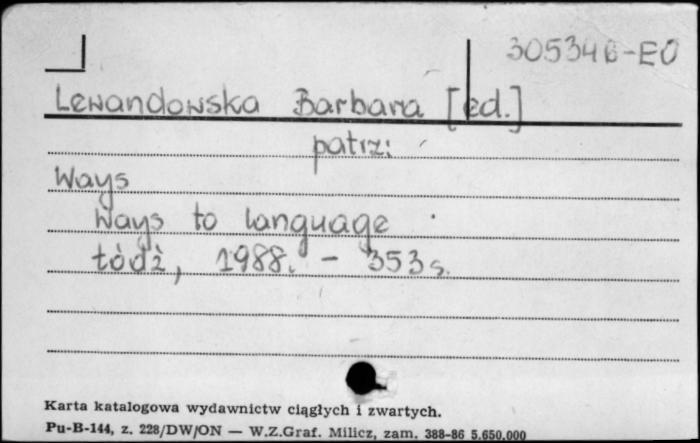 305346-EO
Lewandowska Barbara [ed.]
patrz:
Ways
Ways to language
Łódź, 1988. - 353 s.
Karta katalogowa wydawnictw ciągłych i zwartych.
Pu-B-144, z. 228/DW/ON — W.Z.Graf. Milicz, zam. 388-86 5.650.000